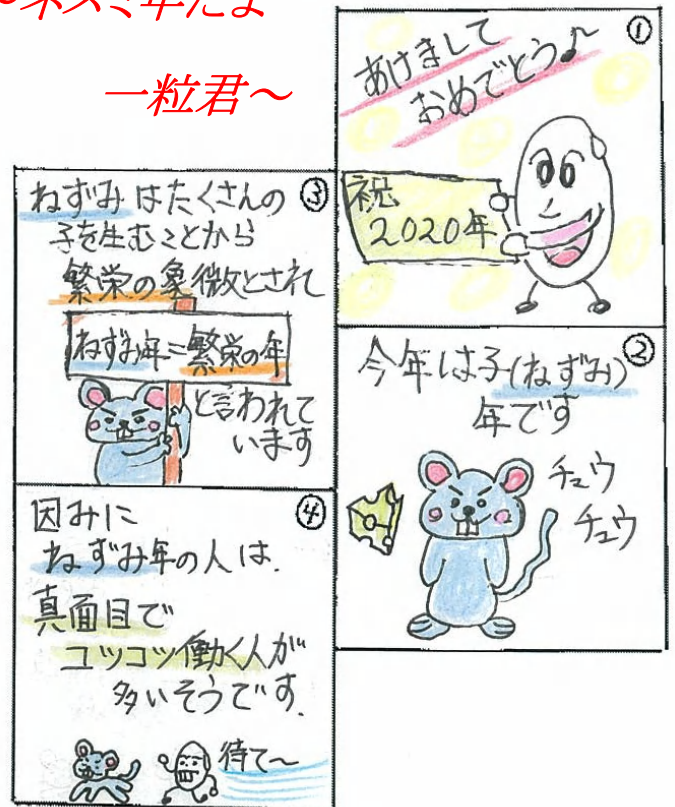 ～ネズミ年だよ
一粒君～
①
あけまして
おめでとう♪
祝
2020年
②
今年は子(ねずみ)
年です
チュウ
チュウ
③
ねずみはたくさんの
子を生むことから
繁栄の象徴とされ
ねずみ年=繁栄の年
と言われて
います
④
因みに
ねずみ年の人は、
真面目で
コツコツ働く人が
多いそうです。
待て～